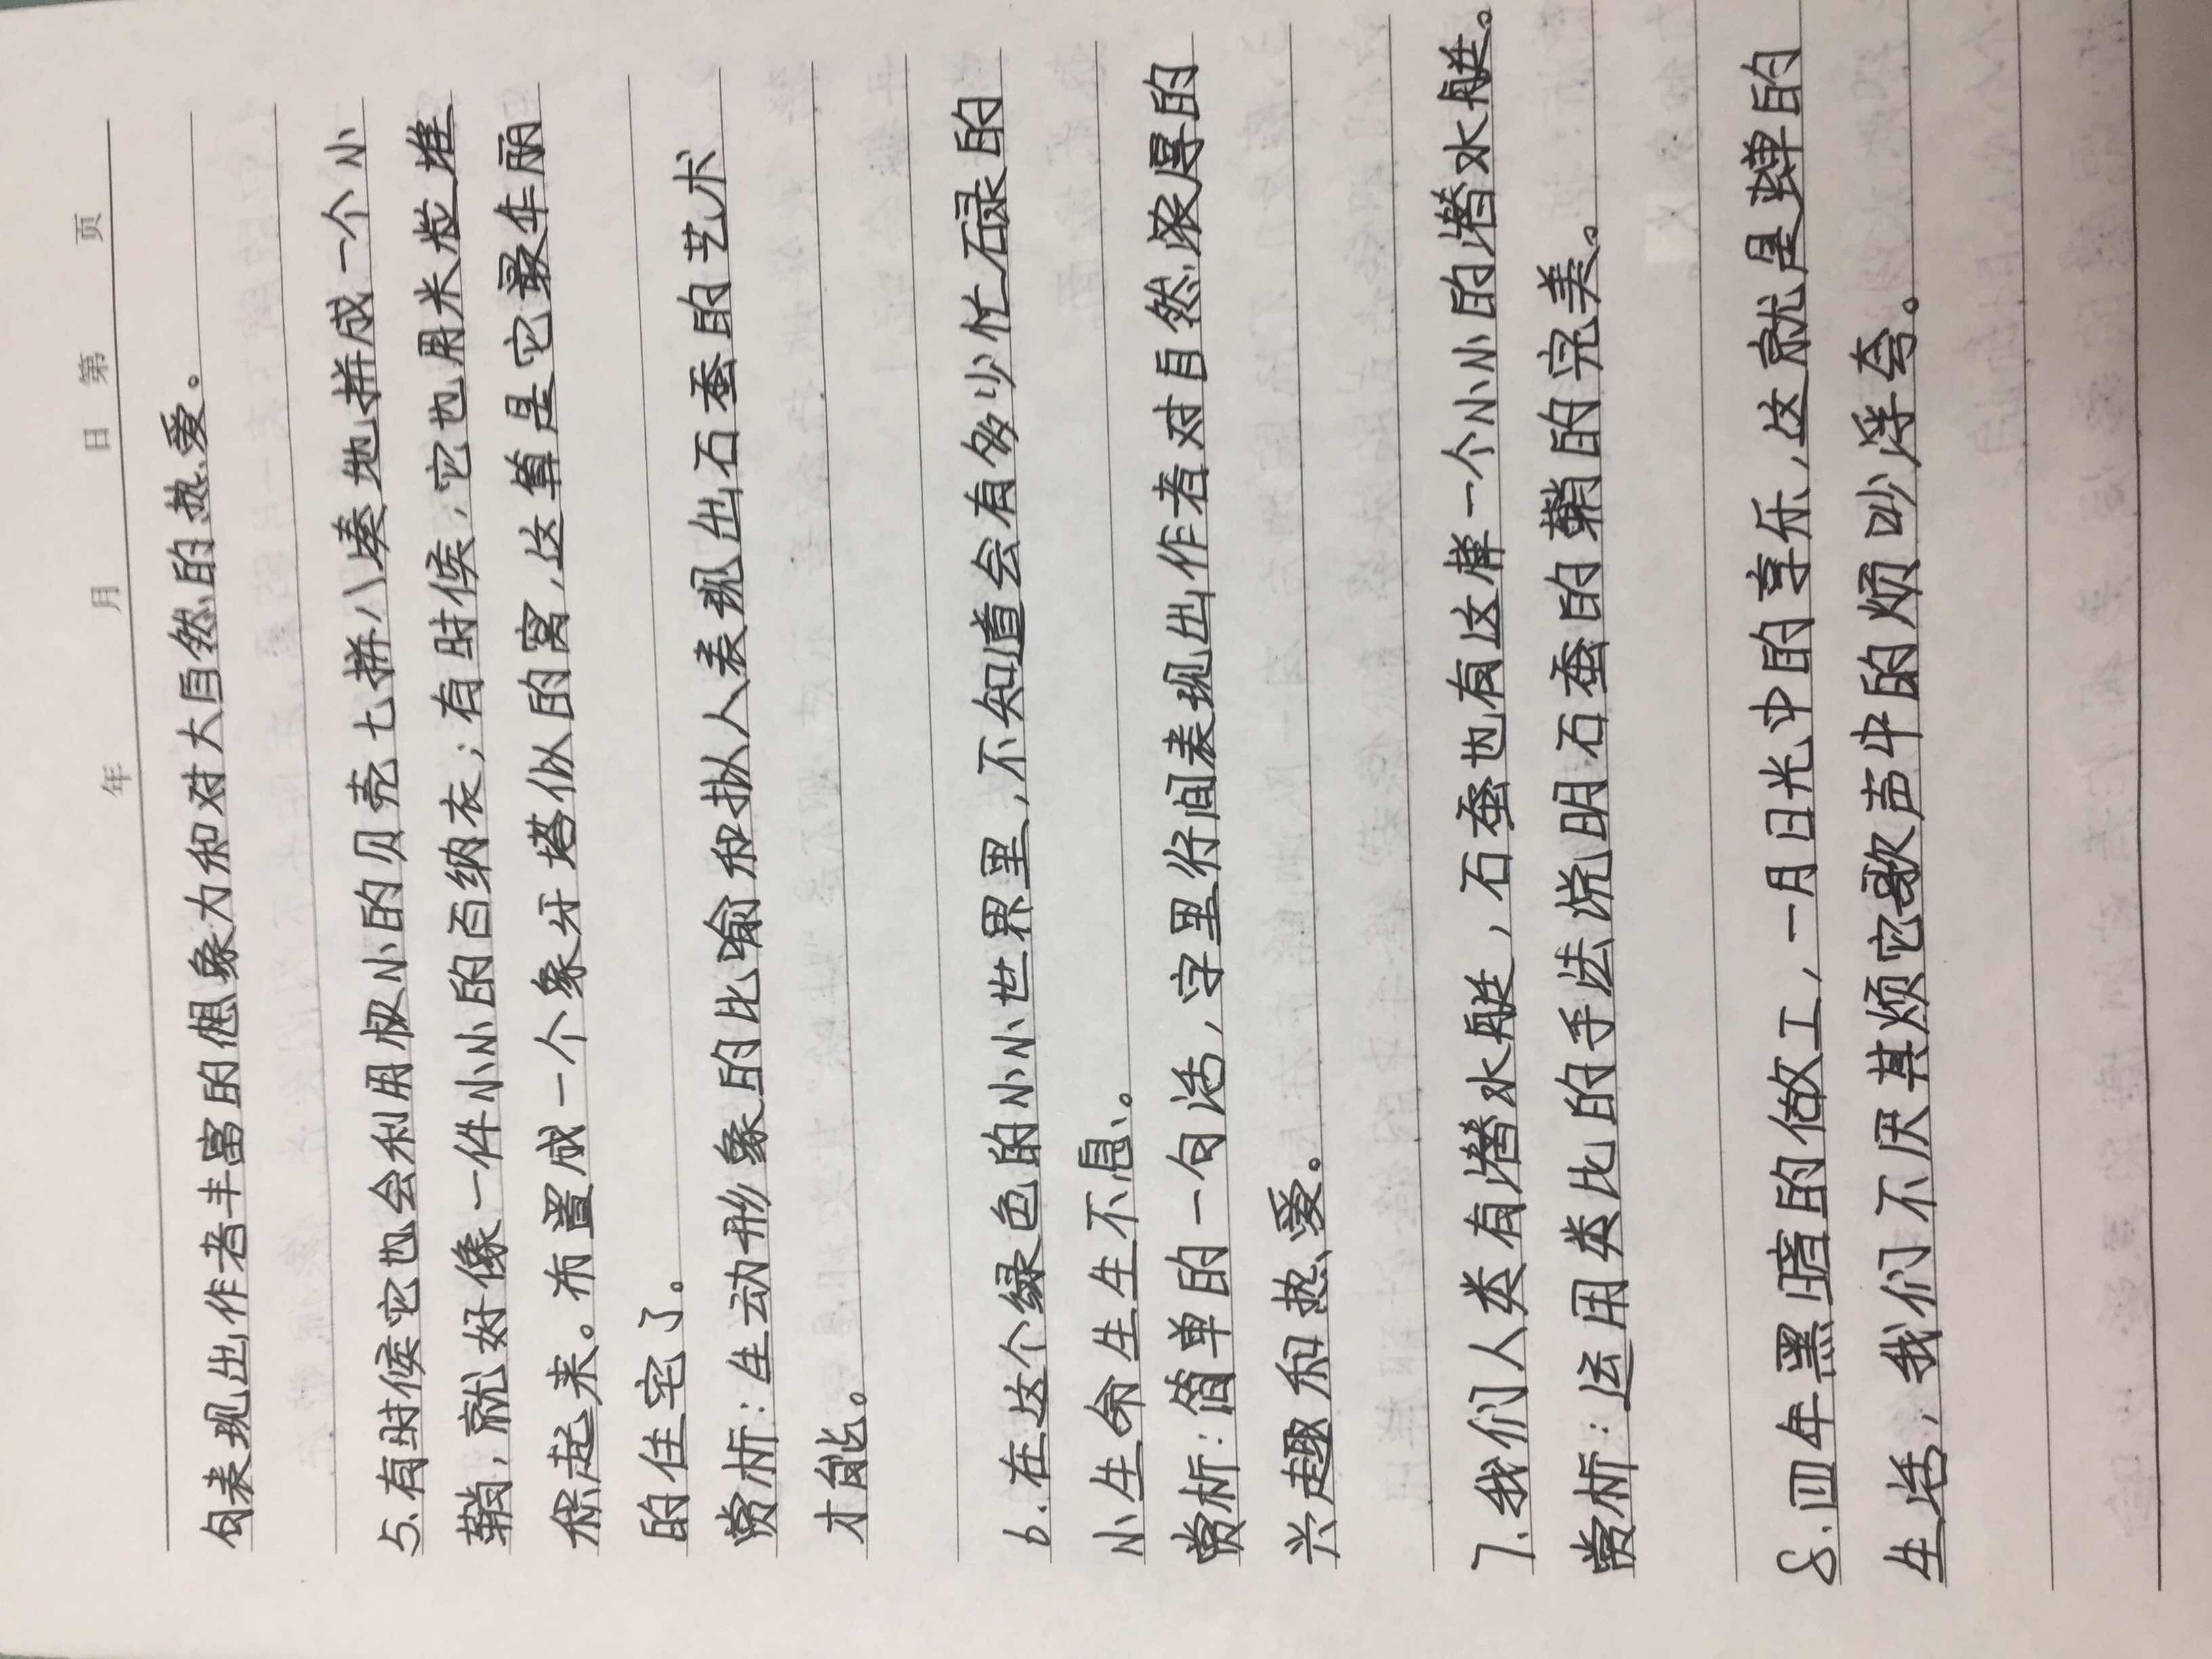 年 月 日 第 页
句表现出作者丰富的想象力和对大自然的热爱。
5.有时候它也会利用极小的贝壳七拼八凑地拼成一个小
鞘，就好像一件小小的百纳衣；有时候，它也用米粒堆
积起来。布置成一个象牙塔似的窝，这算是它最华丽
的住宅了。
赏析：生动形象的比喻和拟人表现出石蚕的艺术
才能。
6.在这个绿色的小小世界里，不知道会有多少忙碌的
小生命生生不息。
赏析：简单的一句话，字里行间表现出作者对自然浓厚的
兴趣和热爱。
7.我们人类有潜水艇，石蚕也有这样一个小小的潜水艇。
赏析：运用类比的手法说明石蚕的鞘的完美。
8.四年黑暗的做工，一月日光中的享乐，这就是蝉的
生活，我们不厌其烦它歌声中的烦吵浮夸。